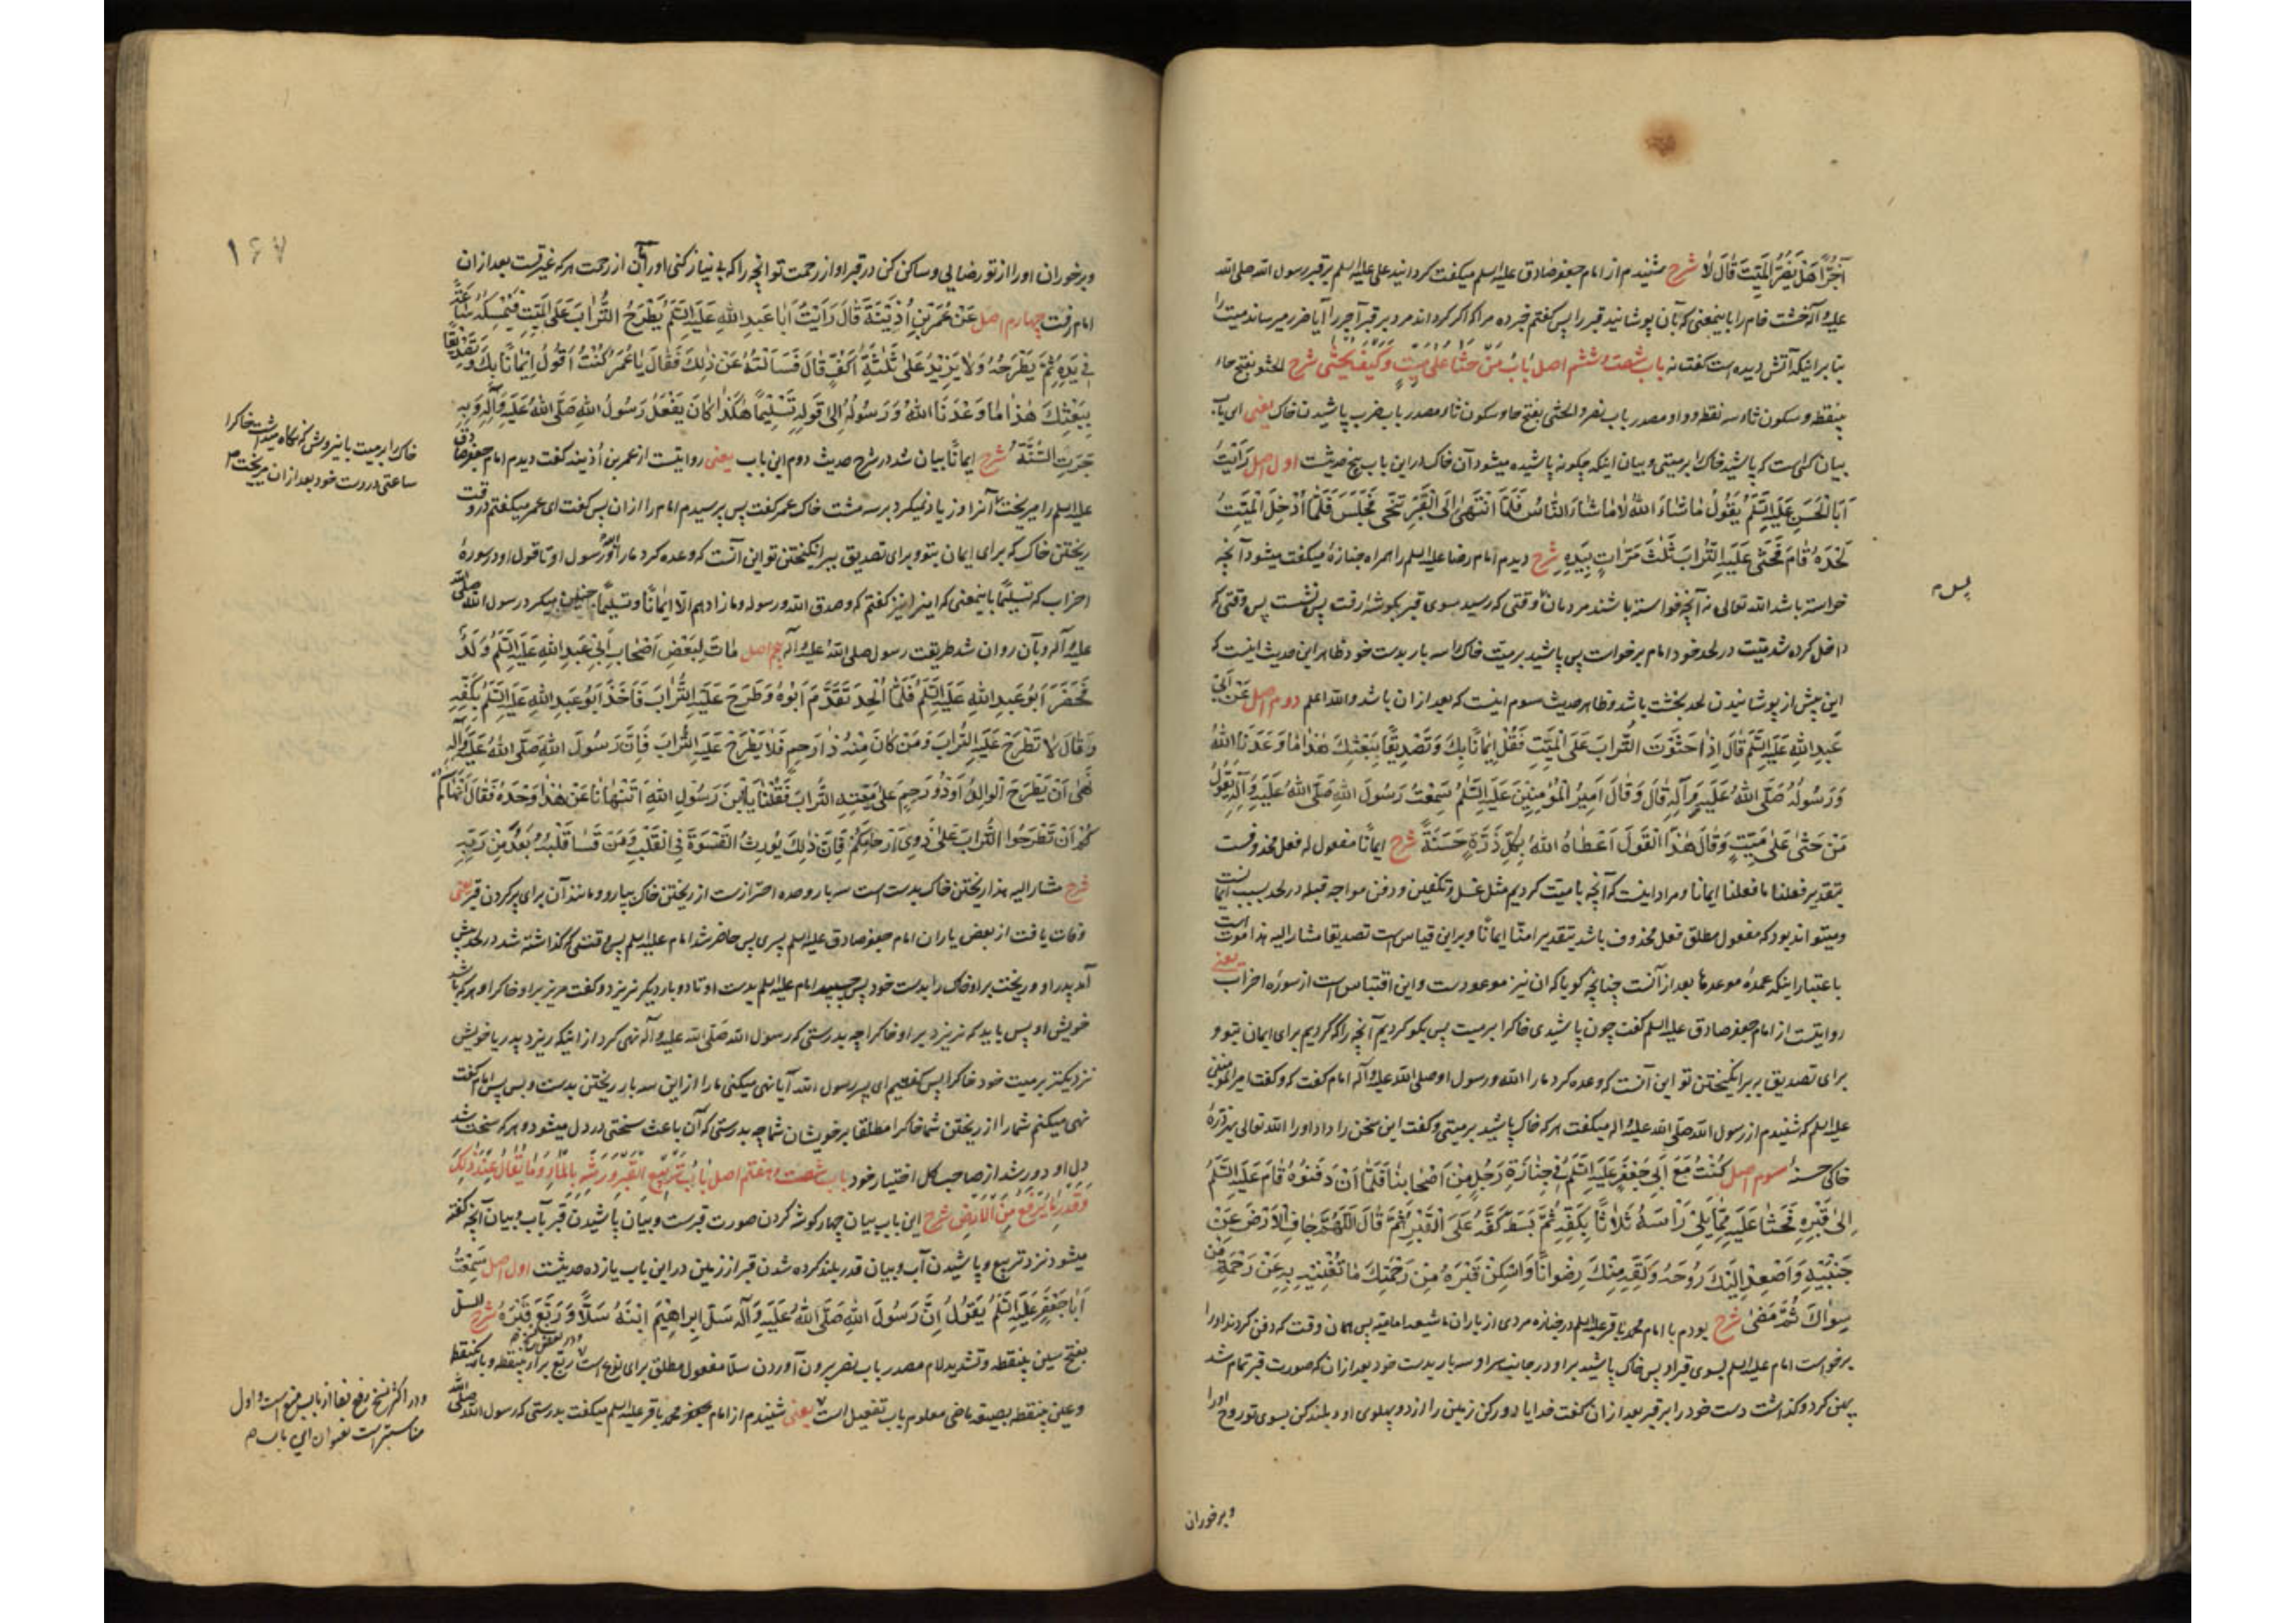 آجُرّاً هَلْ يَضُرُّ المَيِّتَ قَالَ لَا شرح شنیدم از امام جعفر صادق علیه السلم میکفت کردانید علی علیه السلم بر قبر رسول الله صلی الله
علیه و آله خشت خام را باینمعنی که بآن پوشانید قبر را پس کفتم خبر ده مرا که اکر کرداند مرد بر قبر آجر را آیا ضرر میرساند میت را
بنا بر اینکه آتش دیده است کفت نه باب شصت و ششم اصل بَابُ مَنْ حَثَا عَلى مَيِّتٍ وَكَيْفَ يُحْثى شرح الحثو بفتح حاء
بینقطه و سکون ثاء سه نقطه و واو مصدر باب نصر و الحثی بفتح حا و سکون ثاء مصدر باب ضرب پاشیدن خاک یعنی این باب
بیان کسی است که پاشید خاک را بر میتی و بیان اینکه چکونه پاشیده میشود آن خاک در این باب پنج حدیثست اول اصل رَأَيْتُ
أَبَا الْحَسَنِ عَلَيْهِ السَّلَمُ يَقُولُ مَا شَاءَ اللهُ لَا مَا شَاءَ النَّاسُ فَلَمَّا انْتَهى إِلَى الْقَبْرِ تَنَحّى فَجَلَسَ فَلَمَّا أُدْخِلَ الْمَيِّتُ
لَحْدَهُ قَامَ فَحَثى عَلَيْهِ التُّرَابَ ثَلَثَ مَرَّاتٍ بِيَدِهِ شرح دیدم امام رضا علیه السلم را همراه جنازهٔ میکفت میشود آنچه
خواسته باشد الله تعالی نه آنچه خواسته باشند مردمان وقتی که رسید بسوی قبر بکوشهٔ رفت پس نشست پس وقتی که
پس م
داخل کرده شد میت در لحد خود امام برخواست پس پاشید بر میت خاک را سه بار بدست خود ظاهر این حدیث اینست که
این پیش از پوشانیدن لحد بخشت باشد و ظاهر حدیث سوم اینست که بعد از ان باشد والله اعلم دوم اصل عَنْ أَبِي
عَبْدِ اللهِ عَلَيْهِ السَّلَمُ قَالَ إِذَا حَثَوْتَ التُّرَابَ عَلَى الْمَيِّتِ فَقُلْ إِيمَاناً بِكَ وَتَصْدِيقاً بِبَعْثِكَ هٰذَا مَا وَعَدَنَا اللهُ
وَرَسُولُهُ صَلَّى اللهُ عَلَيْهِ وَآلِهِ قَالَ وَقَالَ أَمِيرُ الْمُؤْمِنِينَ عَلَيْهِ السَّلَمُ سَمِعْتُ رَسُولَ اللهِ صَلَّى اللهُ عَلَيْهِ وَآلِهِ يَقُولُ
مَنْ حَثى عَلى مَيِّتٍ وَقَالَ هٰذَا الْقَوْلَ أَعْطَاهُ اللهُ بِكُلِّ ذَرَّةٍ حَسَنَةً شرح ایماناً مفعول له فعل محذوفست
بتقدیر فعلنا ما فعلنا ایمانا و مراد اینست که آنچه با میت کردیم مثل غسل و تکفین و دفن مواجه قبله در لحد بسبب ایمانست
و میتواند بود که مفعول مطلق فعل محذوف باشد بتقدیر امنّا ایماناً و براین قیاس است تصدیقا مشار الیه هذا موت است
باعتبار اینکه عمدهٔ موعدها بعد از آنست چنانچه کویا که ان نیز موعودست و این اقتباس است از سورهٔ احزاب یعنی
روایتست از امام جعفر صادق علیه السلم کفت چون پاشیدی خاکرا بر میت پس بکو کردیم آنچه را که کردیم برای ایمان بتو و
برای تصدیق ببرانکیختن تو این آنست که وعده کرد مارا الله و رسول او صلی الله علیه و آله امام کفت که و کفت امیر المؤمنین
علیه السلم که شنیدم از رسول الله صلی الله علیه و اله میکفت هر که خاک پاشید بر میتی و کفت این سخن را داد او را الله تعالی بهر ذرهٔ
خاکی حسنهٔ سوم اصل كُنْتُ مَعَ أَبِي جَعْفَرٍ عَلَيْهِ السَّلَمُ فِي جِنَازَةِ رَجُلٍ مِنْ أَصْحَابِنَا فَلَمَّا أَنْ دَفَنُوهُ قَامَ عَلَيْهِ السَّلَمُ
إِلى قَبْرِهِ فَحَثَا عَلَيْهِ مِمَّا يَلِي رَأْسَهُ ثَلَاثاً بِكَفِّهِ ثُمَّ بَسَطَ كَفَّهُ عَلَى الْقَبْرِ ثُمَّ قَالَ اللّهُمَّ جَافِ الْأَرْضَ عَنْ
جَنْبَيْهِ وَأَصْعِدْ إِلَيْكَ رُوحَهُ وَلَقِّهِ مِنْكَ رِضْوَاناً وَأَسْكِنْ قَبْرَهُ مِنْ رَحْمَتِكَ مَا تُغْنِيهِ بِهِ عَنْ رَحْمَةِ مَنْ
سِوَاكَ ثُمَّ مَضى شرح بودم با امام محمد باقر علیه السلم در جنازه مردی از یاران ما شیعه امامیه پس همان وقت که دفن کردند او را
برخواست امام علیه السلم بسوی قبر او پس خاک پاشید بر او در جانب سر او سه بار بدست خود بعد از ان که صورت قبر تمام شد
پهن کرد و کذاشت دست خود را بر قبر بعد از ان کفت خدایا دور کن زمین را از دو پهلوی او و بلند کن بسوی تو روح او را
و برخوران
۱۶۷
و برخوران او را از تو رضایی و ساکن کن در قبر او از رحمت تو انچه را که بی نیاز کنی او را بآن از رحمت هر که غیر تست بعد از ان
امام رفت چهارم اصل عَنْ عُمَرَ بْنِ أُذَيْنَةَ قَالَ رَأَيْتُ أَبَا عَبْدِ اللهِ عَلَيْهِ السَّلَمُ يَطْرَحُ التُّرَابَ عَلَى الْمَيِّتِ فَيُمْسِكُهُ سَاعَةً
فِي يَدِهِ ثُمَّ يَطْرَحُهُ وَلَا يَزِيدُ عَلى ثَلَثَةِ أَكُفٍّ قَالَ فَسَأَلْتُهُ عَنْ ذٰلِكَ فَقَالَ يَا عُمَرُ كُنْتُ أَقُولُ إِيمَاناً بِكَ وَتَصْدِيقاً
بِبَعْثِكَ هٰذَا مَا وَعَدَنَا اللهُ وَرَسُولُهُ إِلى قَوْلِهِ تَسْلِيماً هٰكَذَا كَانَ يَفْعَلُ رَسُولُ اللهِ صَلَّى اللهُ عَلَيْهِ وَآلِهِ وَبِهِ
جَرَتِ السُّنَّةُ شرح ایماناً بیان شد در شرح حدیث دوم این باب یعنی روایتست از عمر بن أذینه کفت دیدم امام جعفر صادق
خاک را بر میت باین روش که نکاه میداشت خاکرا
ساعتی در دست خود بعد از ان میریخت م
علیه السلم را میریخت آنرا و زیاد نمیکرد بر سه مشت خاک عمر کفت پس پرسیدم امام را از ان پس کفت ای عمر میکفتم در وقت
ریختن خاک که برای ایمان بتو و برای تصدیق ببرانکیختن تو این آنست که وعده کرد مارا الله و رسول او تا قول او در سورهٔ
احزاب که تسلیماً باینمعنی که اینرا نیز کفتم که وصدق الله ورسوله وما زادهم الّا ایماناً وتسلیماً چنین میکرد رسول الله صلی الله
علیه و آله و بآن روان شد طریقت رسول صلی الله علیه و آله پنجم اصل مَاتَ لِبَعْضِ أَصْحَابِ أَبِي عَبْدِ اللهِ عَلَيْهِ السَّلَمُ وَلَدٌ
فَحَضَرَ أَبُو عَبْدِ اللهِ عَلَيْهِ السَّلَمُ فَلَمَّا أُلْحِدَ تَقَدَّمَ أَبُوهُ وَطَرَحَ عَلَيْهِ التُّرَابَ فَأَخَذَ أَبُو عَبْدِ اللهِ عَلَيْهِ السَّلَمُ بِكَفَّيْهِ
وَقَالَ لَا تَطْرَحْ عَلَيْهِ التُّرَابَ وَمَنْ كَانَ مِنْهُ ذَا رَحِمٍ فَلَا يَطْرَحْ عَلَيْهِ التُّرَابَ فَإِنَّ رَسُولَ اللهِ صَلَّى اللهُ عَلَيْهِ وَآلِهِ
نَهى أَنْ يَطْرَحَ الْوَالِدُ أَوْ ذُو رَحِمٍ عَلى مَيِّتِهِ التُّرَابَ فَقُلْنَا يَا ابْنَ رَسُولِ اللهِ أَتَنْهَانَا عَنْ هٰذَا وَحْدَهُ فَقَالَ أَنْهَاكُمْ
أَنْ تَطْرَحُوا التُّرَابَ عَلى ذَوِي أَرْحَامِكُمْ فَإِنَّ ذٰلِكَ يُورِثُ الْقَسْوَةَ فِي الْقَلْبِ وَمَنْ قَسَا قَلْبُهُ بَعُدَ مِنْ رَبِّهِ
شرح مشار الیه هذا ریختن خاک بدست است سه بار وحده احترازست از ریختن خاک ببیل و مانند آن برای پر کردن قبر یعنی
وفات یافت از بعض یاران امام جعفر صادق علیه السلم پسری پس حاضر شد امام علیه السلم پس وقتی که کذاشته شد در لحد پیش
آمد پدر او و ریخت بر او خاک را بدست خود پس چسبید امام علیه السلم بدست او تا دو بار دیکر نریزد و کفت مریز بر او خاکرا و هر که باشد
خویش او پس باید که نریزد بر او خاکرا چه بدرستی که رسول الله صلی الله علیه و آله نهی کرد از اینکه ریزد پدر یا خویش
نزدیکتر بر میت خود خاکرا پس کفتیم ای پسر رسول الله آیا نهی میکنی مارا از این سه بار ریختن بدست و بس پس امام کفت
نهی میکنم شما را از ریختن شما خاکرا مطلقا بر خویشان شما چه بدرستی که آن باعث سختی در دل میشود و هر که سخت شد
دل او دور شد از صاحب کل اختیار خود باب شصت و هفتم اصل بَابُ تَرْبِيعِ الْقَبْرِ وَرَشِّهِ بِالْمَاءِ وَمَا يُقَالُ عِنْدَ ذٰلِكَ
وَقَدْرِ مَا يُرْفَعُ مِنَ الْأَرْضِ شرح این باب بیان چهار کوشه کردن صورت قبرست و بیان پاشیدن قبر بآب و بیان آنچه کفته
میشود نزد تربیع و پاشیدن آب و بیان قدر بلند کرده شدن قبر از زمین در این باب یازده حدیثست اول اصل سَمِعْتُ
أَبَا جَعْفَرٍ عَلَيْهِ السَّلَمُ يَقُولُ إِنَّ رَسُولَ اللهِ صَلَّى اللهُ عَلَيْهِ وَآلِهِ سَلَّ إِبْرَاهِيمَ ابْنَهُ سَلّاً وَرَبَّعَ قَبْرَهُ شرح السل
بفتح سین بینقطه و تشدید لام مصدر باب نصر برون آوردن سلّا مفعول مطلق برای نوع است ربّع براء بینقطه و باء یکنقطه
و عین بینقطه بصیغه ماضی معلوم باب تفعیل است یعنی شنیدم از امام محمد باقر علیه السلم میکفت بدرستی که رسول الله صلی الله
و در اکثر نسخ رفع بفا از باب منع است و اول
مناسبتر است بعنوان این باب م